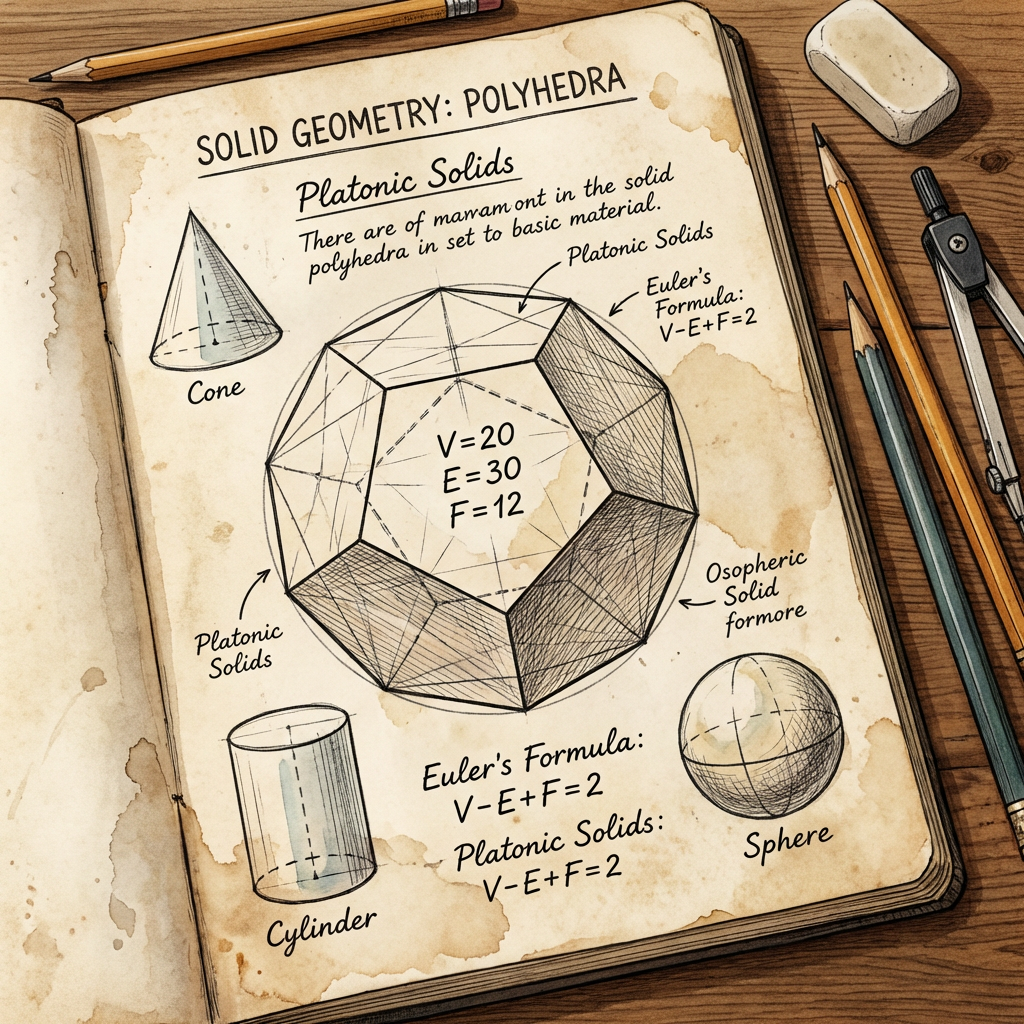 SOLID GEOMETRY: POLYHEDRA
Platonic Solids
There are of mawam ont in the solid
polyhedra in set to basic material.
Platonic Solids
Euler's
Formula:
V-E+F=2
Cone
V=20
E=30
F=12
Osopheric
Solid
formore
Platonic
Solids
Euler's Formula:
V-E+F=2
Platonic Solids:
V-E+F=2
Sphere
Cylinder